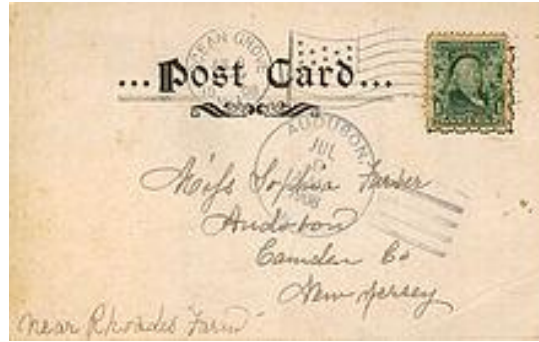 OCEAN GROVE
... Post Card ...
AUDUBON,
JUL
1908
Miss Sophia
Audobon
Camden Co
New Jersey
near Rhoades Farm